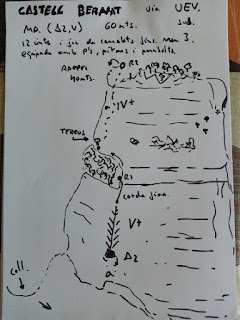 CASTELL BERNAT via UEV.
MD. (A2, V) 60 mts. sud.
12 cints i joc de camalots fins num 3.
equipada amb p's, pitons i parabolts
RAPPEL R2
40mts.
IV+
TERRUS
R1
corda fixa.
V+
A2
Coll.